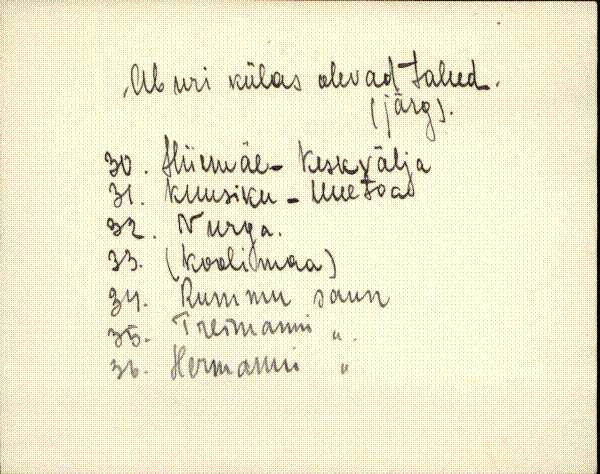 Aburi külas olevad talud.
(järg).
30. Hiiemäe - Keskvälja
31. Kuusiku - Uuetoa
32. Nurga.
33. (Koolimaa)
34. Rummu saun
35. Treimanni ".
36. Hermanni "